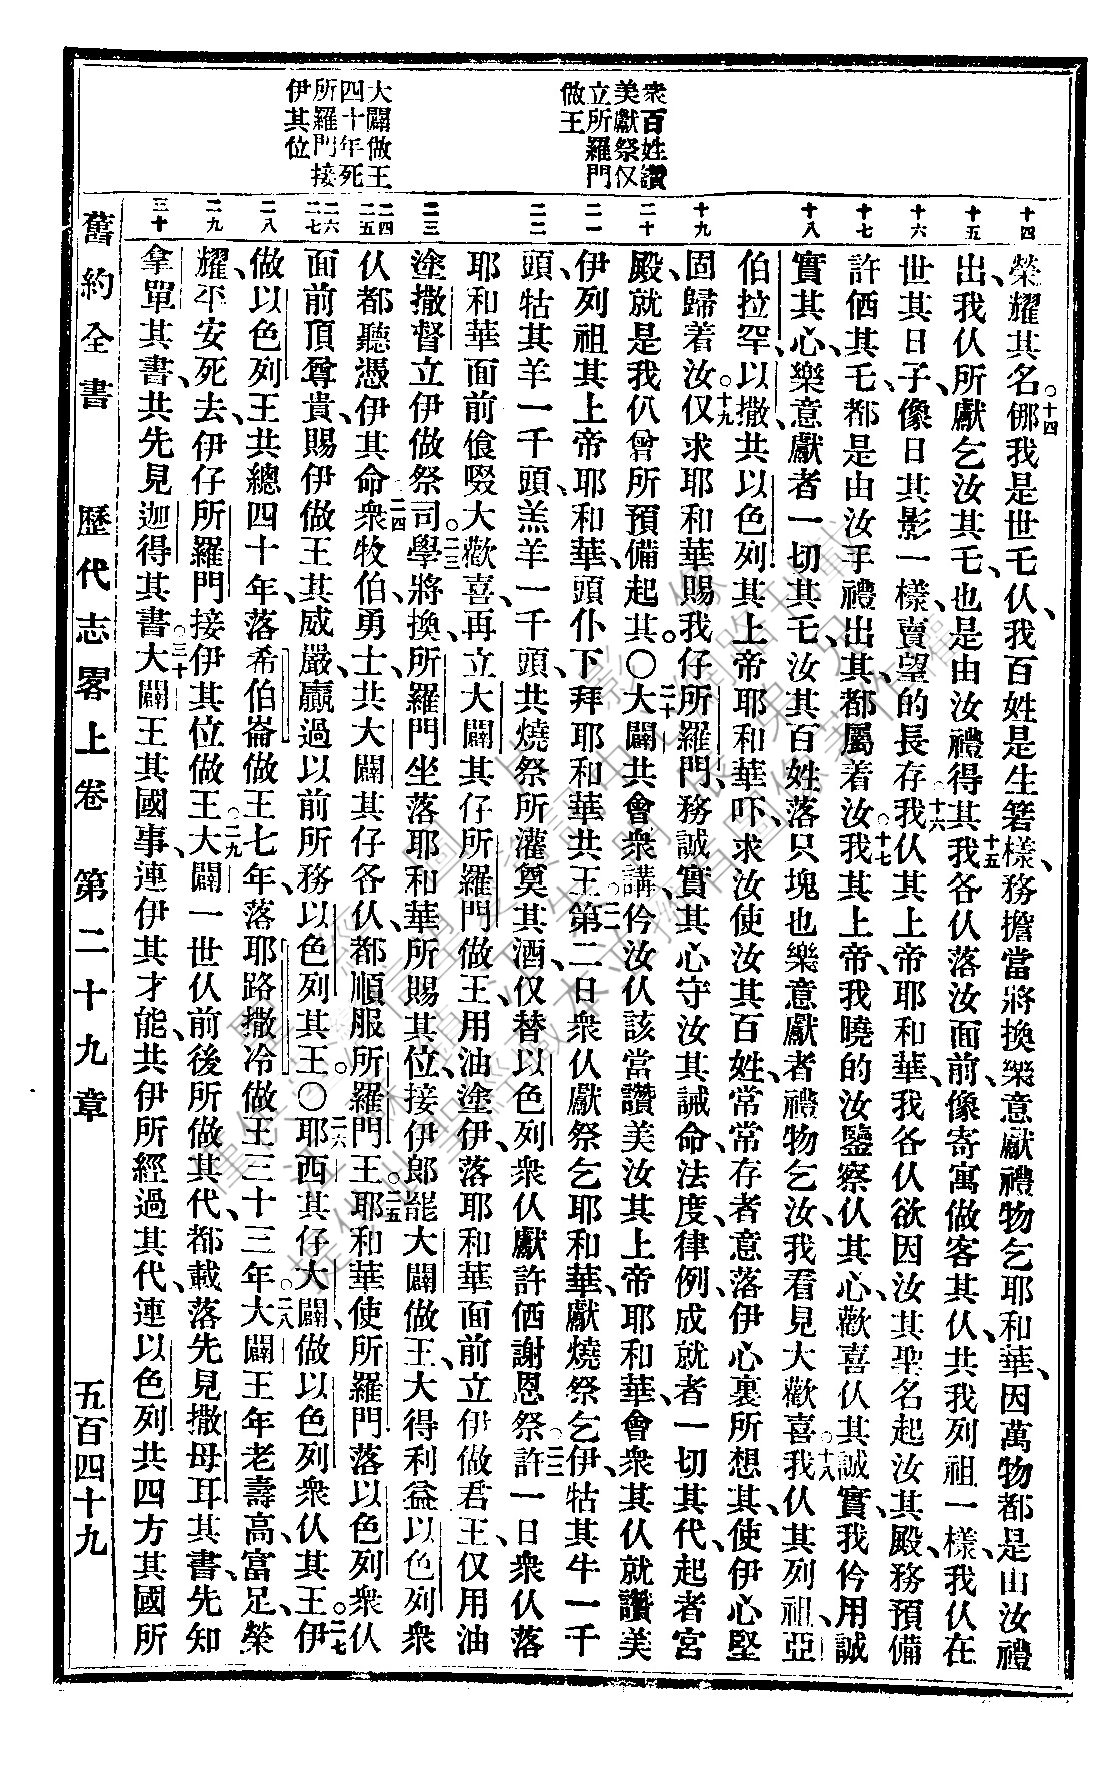 衆百姓讚
美獻祭仅
立所羅門
做王
大闢做王
四十年死
所羅門接
伊其位
十四 十五 十六 十七 十八 十九 二十 二一 二二 二三 二四 二五 二六 二七 二八 二九 三十
榮耀其名。十四㑚我是世乇仈、我百姓是生箬樣、務擔當將換樂意獻禮物乞耶和華、因萬物都是由汝禮
出、我仈所獻乞汝其乇、也是由汝禮得其。十五我各仈落汝面前、像寄寓做客其仈、共我列祖一樣、我仈在
世其日子、像日其影一樣、賣望的長存。十六我仈其上帝耶和華、我各仈欲因汝其聖名起汝其殿、務預備
許㑚其乇、都是由汝手禮出其、都屬着汝。十七我其上帝、我曉的汝鑒察仈其心、歡喜仈其誠實、我仱用誠
實其心、樂意獻者一切其乇、汝其百姓落只塊也樂意獻者禮物乞汝、我看見大歡喜。十八我仈其列祖、亞
伯拉罕、以撒共以色列其上帝耶和華吓、求汝使汝其百姓、常常存者意落伊心裏所想其、使伊心堅
固歸着汝。十九仅求耶和華賜我仔所羅門、務誠實其心守汝其誡命、法度、律例、成就者一切其代、起者宮
殿、就是我仈曾所預備起其。〇二十大闢共會衆講、仱汝仈該當讚美汝其上帝耶和華、會衆其仈就讚美
伊列祖其上帝耶和華、頭仆下拜耶和華共王。二一第二日衆仈獻祭乞耶和華、獻燒祭乞伊、牯其牛一千
頭、牯其羊一千頭、羔羊一千頭、共燒祭所灌奠其酒、仅替以色列衆仈獻許㑚謝恩祭。二二許一日衆仈落
耶和華面前飡啜大歡喜、再立大闢其仔所羅門做王、用油塗伊、落耶和華面前立伊做君王、仅用油
塗撒督立伊做祭司。二三學將換、所羅門坐落耶和華所賜其位、接伊郎罷大闢做王、大得利益、以色列衆
仈都聽憑伊其命。二四衆牧伯勇士、共大闢其仔各仈、都順服所羅門王。二五耶和華使所羅門落以色列衆仈
面前頂尊貴、賜伊做王其威嚴、贏過以前所務以色列其王。〇二六耶西其仔大闢、做以色列衆仈其王。二七伊
做以色列王共總四十年、落希伯崙做王七年、落耶路撒冷做王三十三年。二八大闢王年老壽高、富足、榮
耀、平安死去、伊仔所羅門接伊其位做王。二九大闢一世仈前後所做其代、都載落先見撒母耳其書、先知
拿單其書、共先見迦得其書。三十大闢王其國事、連伊其才能、共伊所經過其代、連以色列共四方其國所
舊約全書 歷代志畧上卷 第二十九章 五百四十九